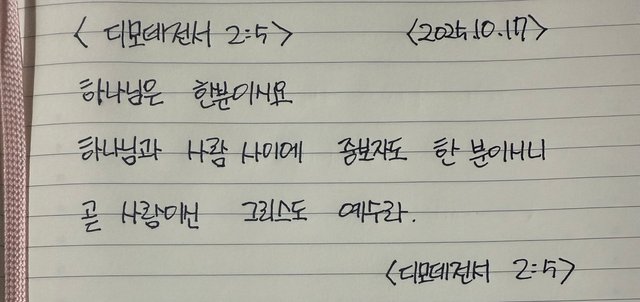 <디모데전서 2:5> <2025.10.17>
하나님은 한분이시요
하나님과 사람 사이에 중보자도 한 분이시니
곧 사람이신 그리스도 예수라.
<디모데전서 2:5>